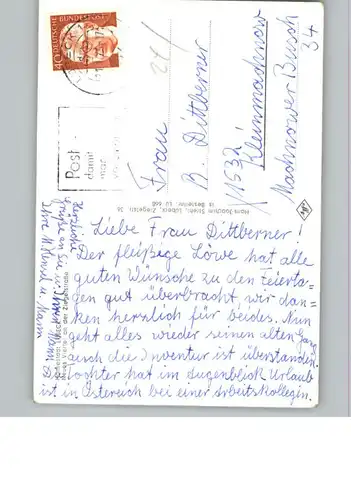 40 DEUTSCHE BUNDESPOST
Post
damit
Frau
B. Dittberner
1532
Kleinmachnow
Machnower Busch
34
Hans-Joachim Stehn, Lübeck, Ziegelstr. 36
Liebe Frau Dittberner!
Der fleißige Löwe hat alle
guten Wünsche zu den Feierta-
gen gut überbracht, wir dan-
ken herzlich für beides. Nun
geht alles wieder seinen alten Gang
auch die Inventur ist überstanden.
Tochter hat im Augenblick Urlaub
ist in Österreich bei einer Arbeitskollegin.
Herzliche
Grüße an Sie